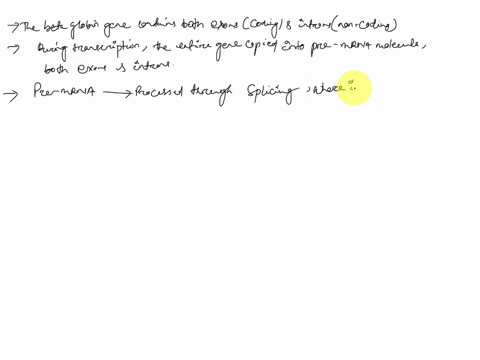 → The beta globin gene contains both exons (coding) & introns (non-coding)
→ During transcription, the entire gene copied into pre-mRNA molecule,
both exons & introns.
→ Pre-mRNA → Processed through Splicing, where :